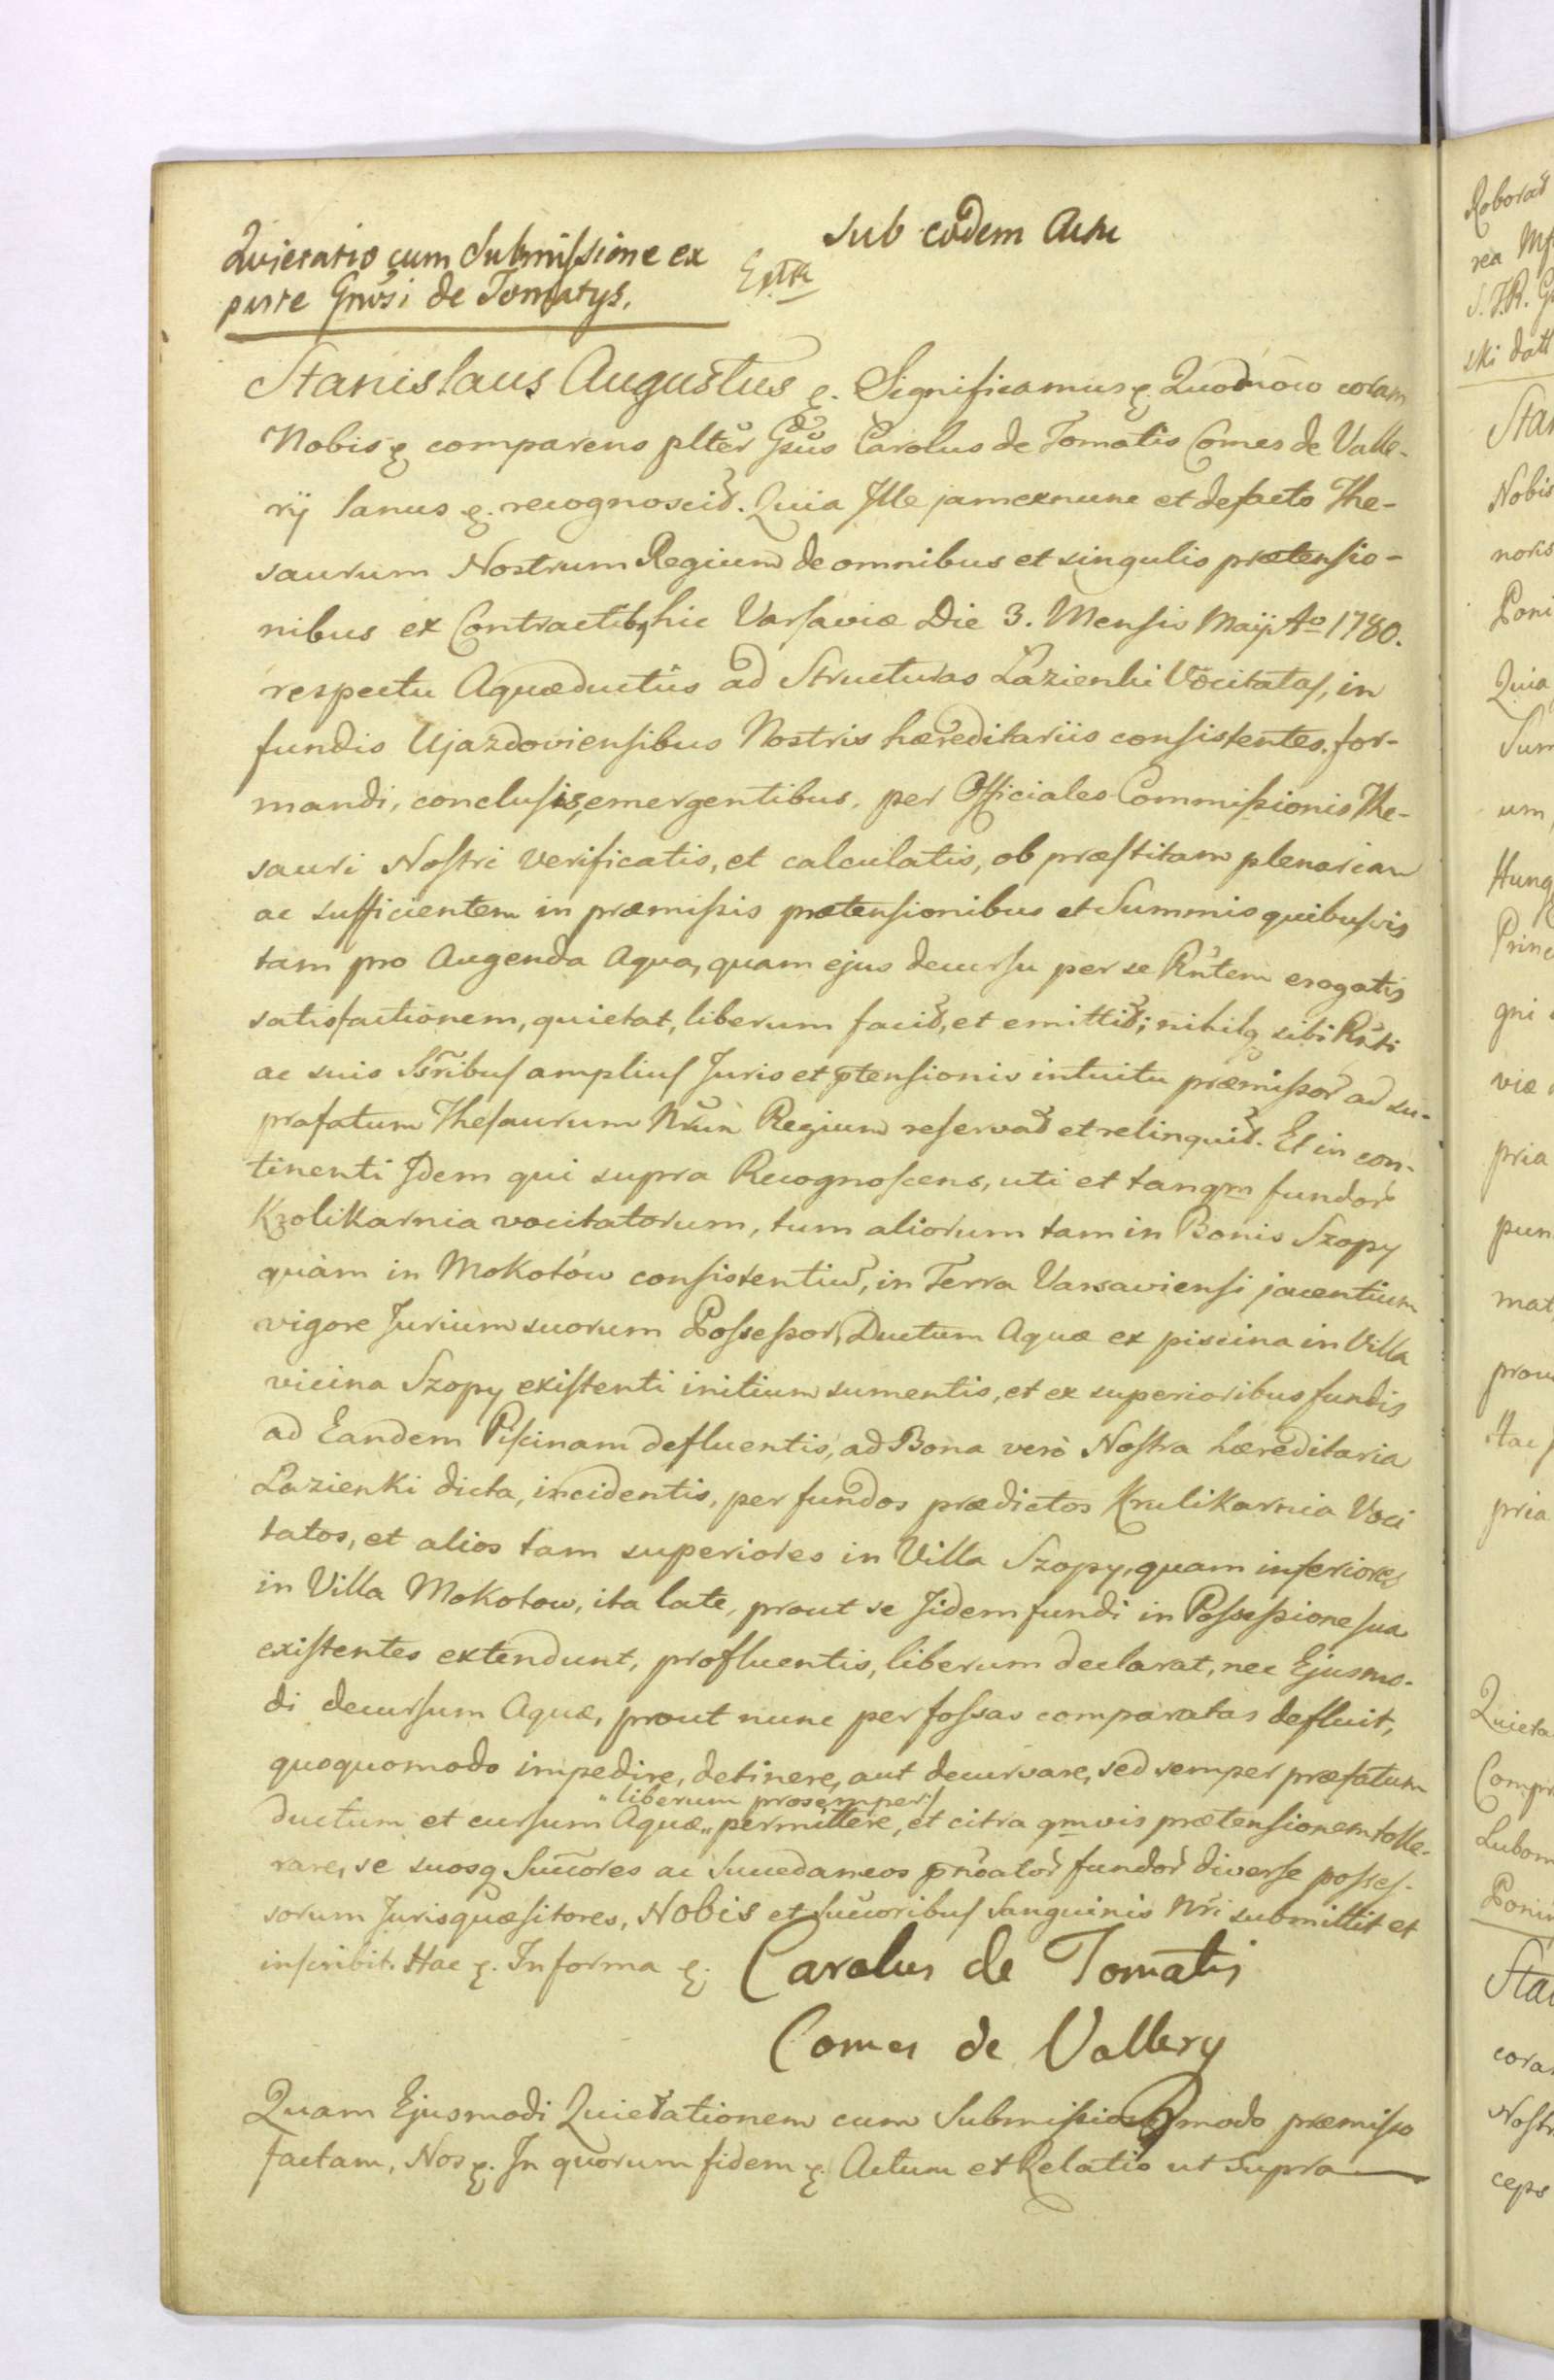 Sub eodem Actu
Quietatio cum Submissione ex
parte Gnosi de Tomatys.
Extra
Stanislaus Augustus &. Significamus &. Quomodo coram
Nobis & comparens plter Gsus Carolus de Tomatis Comes de Valle-
rij Sanus &. recognoscit. Quia Ille jam exnunc et defacto The-
saurum Nostrum Regium de omnibus et singulis prætensio-
nibus ex Contractibq hic Varsaviæ Die 3. Mensis Maij Ao 1780.
respectu Aquæductûs ad Structuras Łazienki Vocitatas, in
fundis Ujazdoviensibus Nostris hæreditariis consistentes, for-
mandi, conclusis, emergentibus, per Officiales Commissionis The-
sauri Nostri verificatis, et calculatis, ob præstitam plenariam
ac sufficientem in præmissis prætensionibus et Summis quibusvis
tam pro Augenda Aqua, quam ejus decursu per se Rntem erogatis
satisfactionem, quietat, liberum facit, et emittit; nihilq sibi Rnti
ac suis Ssribus amplius Juris et ptensionis intuitu præmissor ad su-
prafatum Thesaurum Nrum Regium reservat et relinquit. Et in con-
tinenti Idem qui supra Recognoscens, uti et tanqm fundor
Krolikarnia vocitatorum, tum aliorum tam in Bonis Szopy
quàm in Mokotów consistentium, in Terra Varsaviensi jacentium
vigore Jurium suorum Possessor, Ductum Aquæ ex piscina in Villa
vicina Szopy existenti initium sumentis, et ex superioribus fundis
ad Eandem Piscinam defluentis, ad Bona verò Nostra hæreditaria
Łazienki dicta, incidentis, per fundos prædictos Krulikarnia Voci
tatos, et alios tam superiores in Villa Szopy, quam inferiores
in Villa Mokotow, ita late, prout se Iidem fundi in Possessione sua
existentes extendunt, profluentis, liberum declarat, nec Ejusmo-
di decursum Aquæ, prout nunc per fossas comparatas defluit,
quoquomodo impedire, detinere, aut decurvare, sed semper præfatum
"liberum prosemper/
ductum et cursum Aquæ" permittere, et citra qmvis prætensionem tolle-
rare, se suosq Succores ac Succedaneos pnoator fundor diverse posses-
sorum Jurisquæsitores, Nobis et succoribus Sanguinis Nri submittit et
inscribit. Hac &. In forma &. Carolus de Tomatis
Comes de Vallery
Quam Ejusmodi Quietationem cum Submissione modo præmisso
factam, Nos &. In quorum fidem &. Actum et Relatio ut supra
Roborat
rea
S.
ski datt
Stan
Nobis
noris
Poni
Quia
Sum
um,
Hung
Princ
gni
viæ
pria
pun
mat
prou
Hac
pria
Quieta
Compr
Lubom
Ponin
Stan
coram
Nostr
ceps